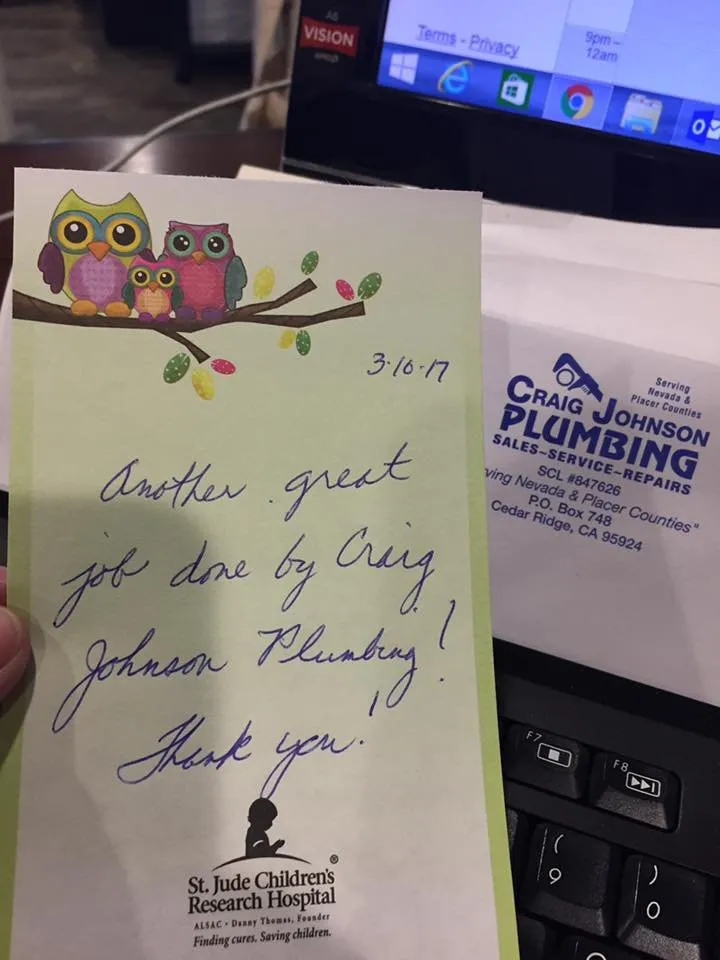 A6
VISION
AMD
Terms - Privacy
9pm –
12am
3-10-17
Another great
job done by Craig
Johnson Plumbing!
Thank you!
St. Jude Children's
Research Hospital
ALSAC • Danny Thomas, Founder
Finding cures. Saving children.
®
Serving
Nevada &
Placer Counties
CRAIG JOHNSON
PLUMBING
SALES~SERVICE~REPAIRS
SCL #847626
ving Nevada & Placer Counties"
P.O. Box 748
Cedar Ridge, CA 95924
F7
F8
(
9
)
0